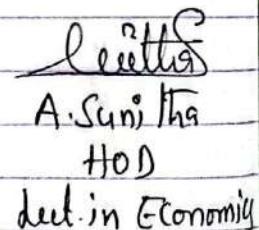 A. Sunitha
HOD
Lect. in Economics